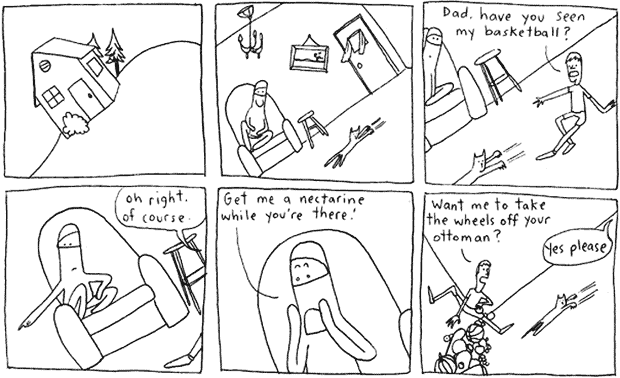 Dad, have you seen
my basketball?
oh right,
of course.
Get me a nectarine
while you're there!
Want me to take
the wheels off your
ottoman?
Yes please